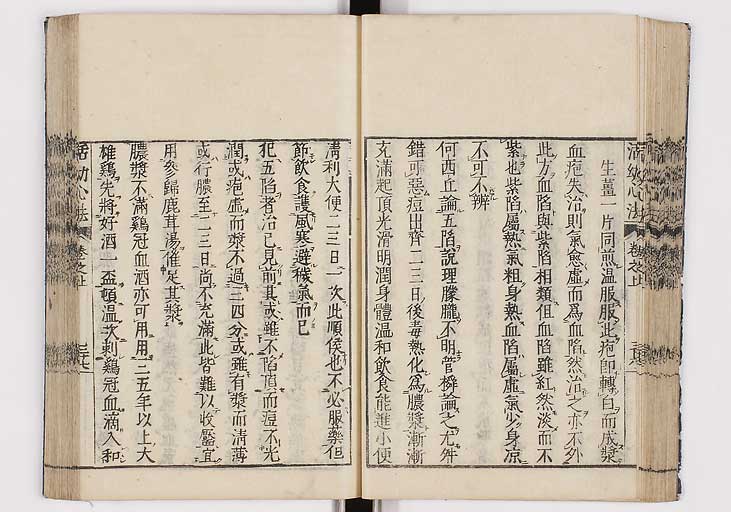 活幼心法 卷之上
生薑一片同煎温服服此疱即轉白而成漿
血疱失治則氣愈虛而爲血陷然治之亦不外
此方血陷與紫陷相類但血陷雖紅然淡而不
紫也紫陷屬熱氣粗身熱血陷屬虛氣少身凉
不可不辨
何西丘論五陷説理朦朧不明管橓論之尤舛
錯可惡痘出齊二三日後毒熱化爲膿漿漸漸
充滿起頂光滑明潤身體温和飲食能進小便
清利大便二三日一次此順候也不必服藥但
節飲食護風寒避穢氣而已
犯五陷者治已見前其或雖不陷頂而痘不光
潤或疱虛而漿不過三四分或雖有漿而清薄
或行膿至二三日尚不充滿此皆難以收靨宜
用參歸鹿茸湯催足其漿
膿漿不滿鷄冠血酒亦可用用二五年以上大
雄鷄先將好酒一盃頓温次剌鷄冠血滴入和
活幼心法 卷之上